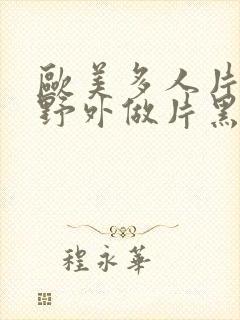 歐美多人片
野外做片黑
程永華